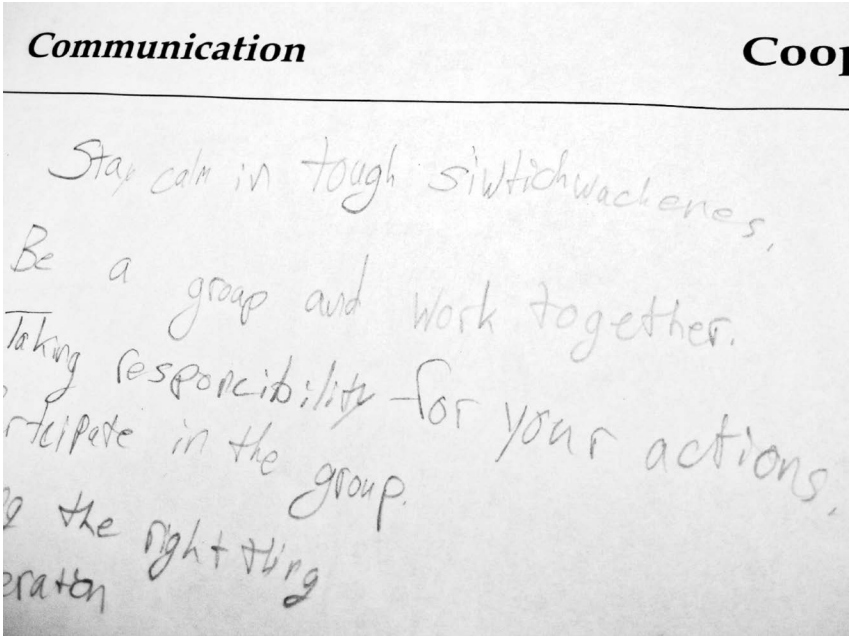 Communication Coop
Stay calm in tough siwtichwachenes,
Be a group and work together.
Taking responcibility for your actions.
rticipate in the group.
g the right thing
eration